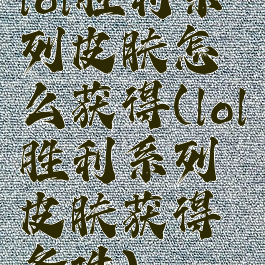 lol胜利系
列皮肤怎
么获得(lol
胜利系列
皮肤获得
条件)